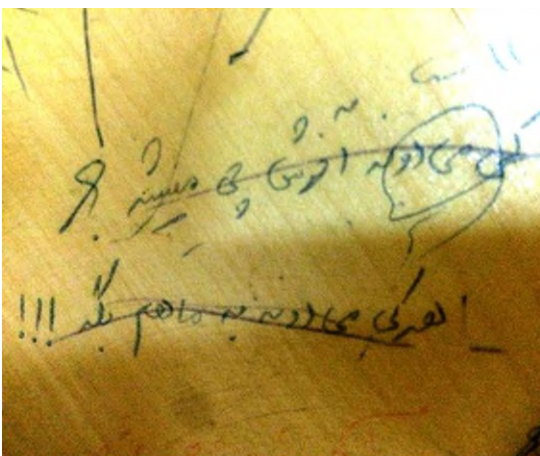 کی می دونه آخرش چی میشه ؟
هرکی می دونه به ما هم بگه !!!